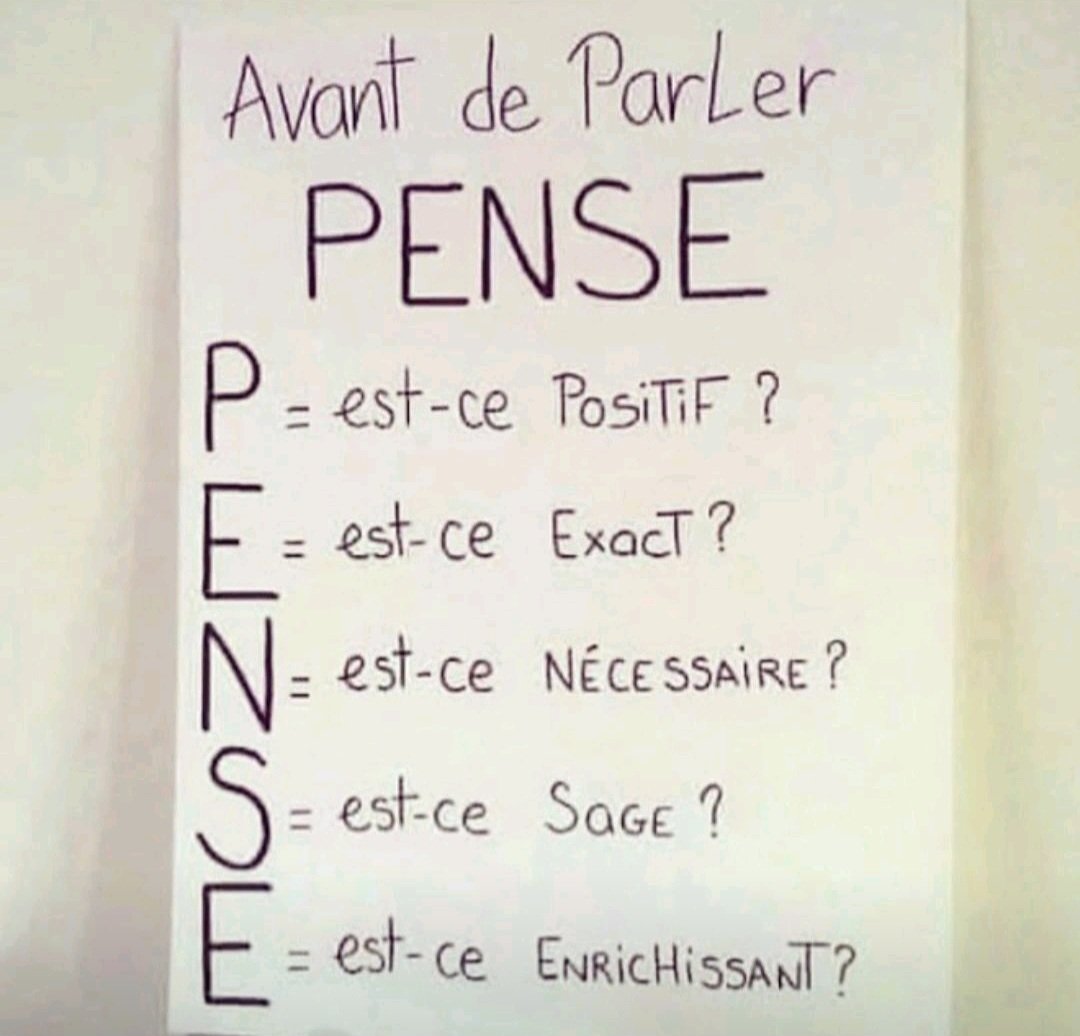 Avant de Parler
PENSE
P = est-ce Positif ?
E = est-ce Exact ?
N = est-ce NÉCESSAIRE ?
S = est-ce SAGE ?
E = est-ce ENRICHISSANT ?